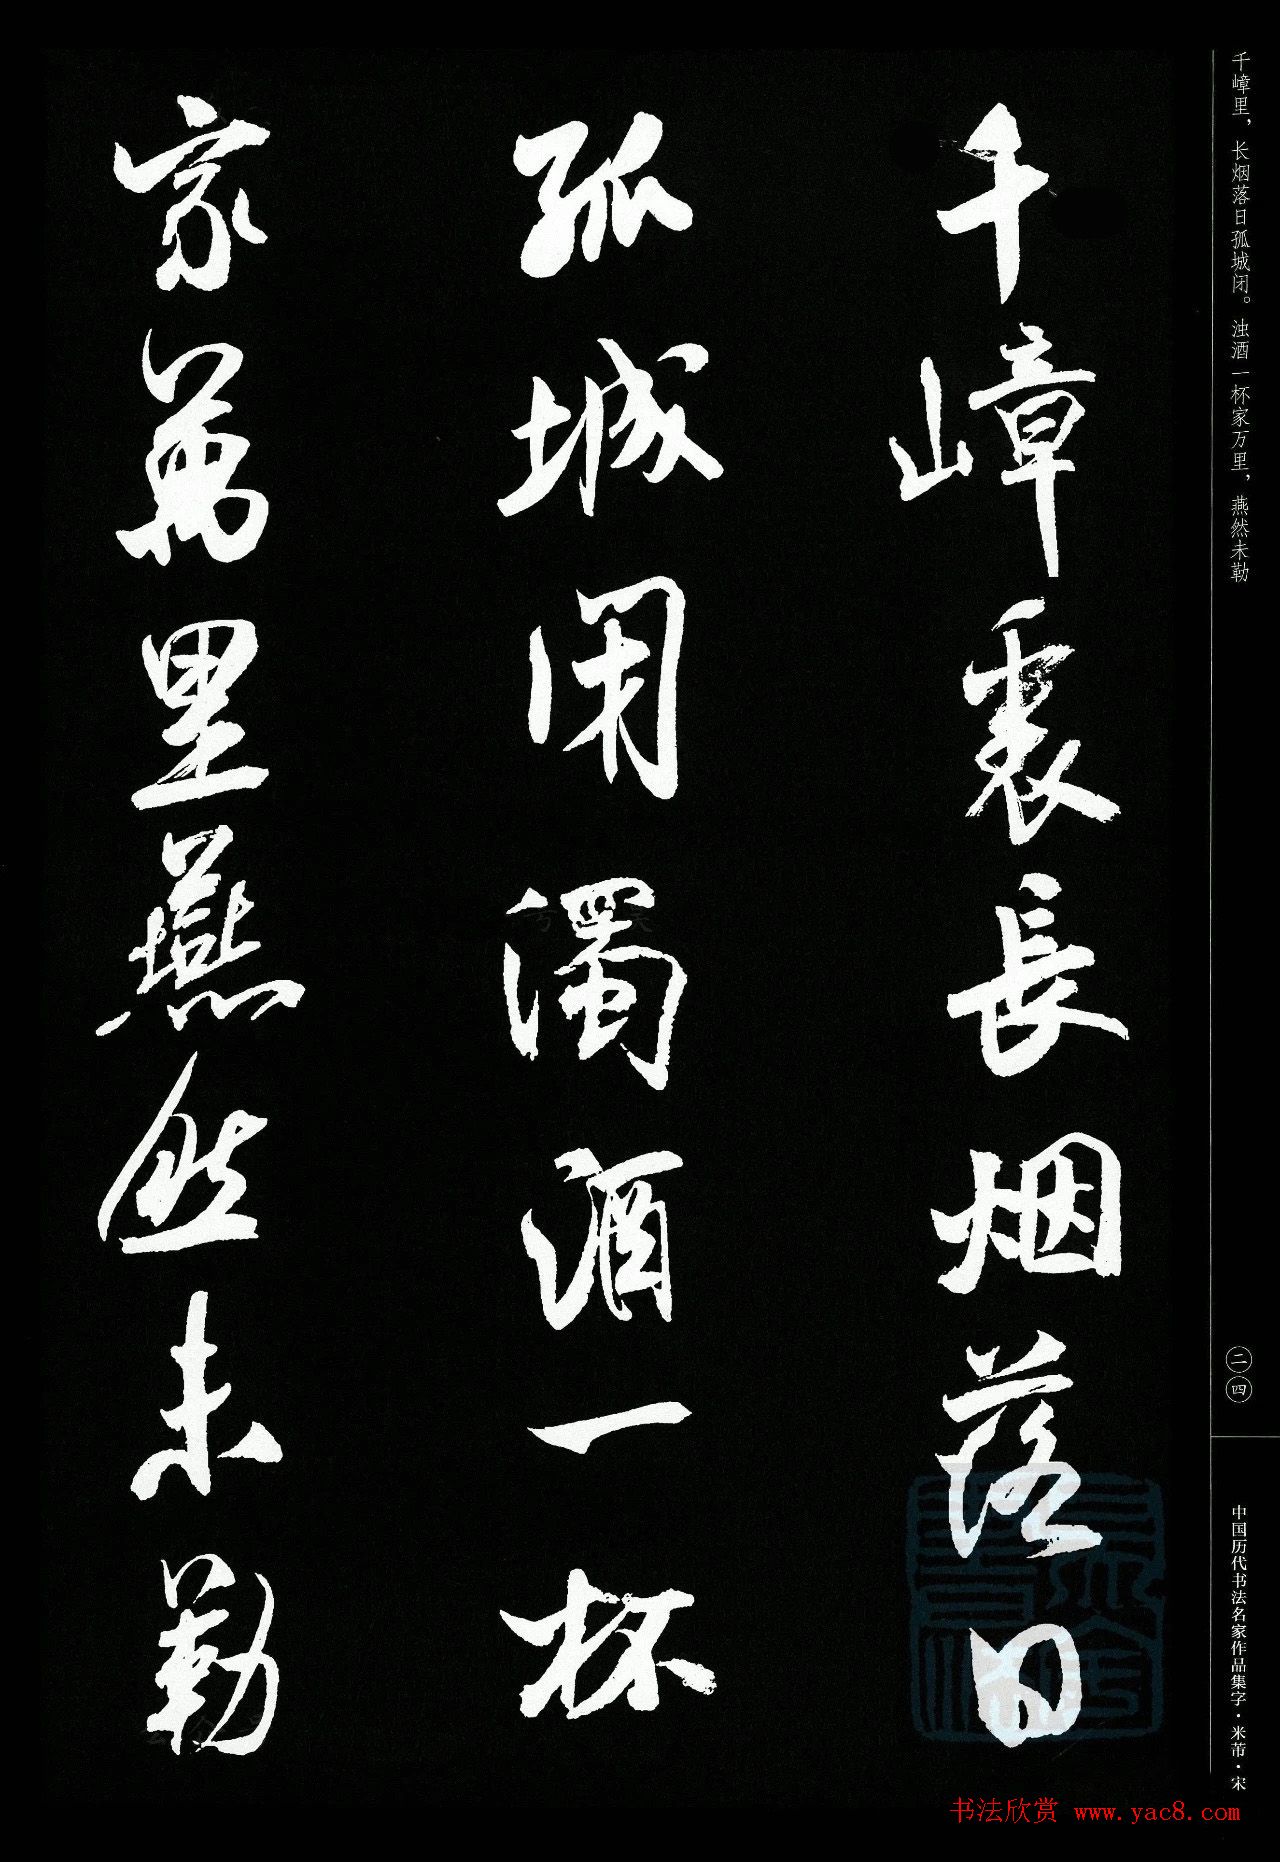 千嶂里，长烟落日孤城闭。浊酒一杯家万里，燕然未勒
千嶂裏長烟落日
孤城闭濁酒一杯
家萬里燕然未勒
二四
中国历代书法名家作品集字·米芾·宋
书法欣赏 www.yac8.com